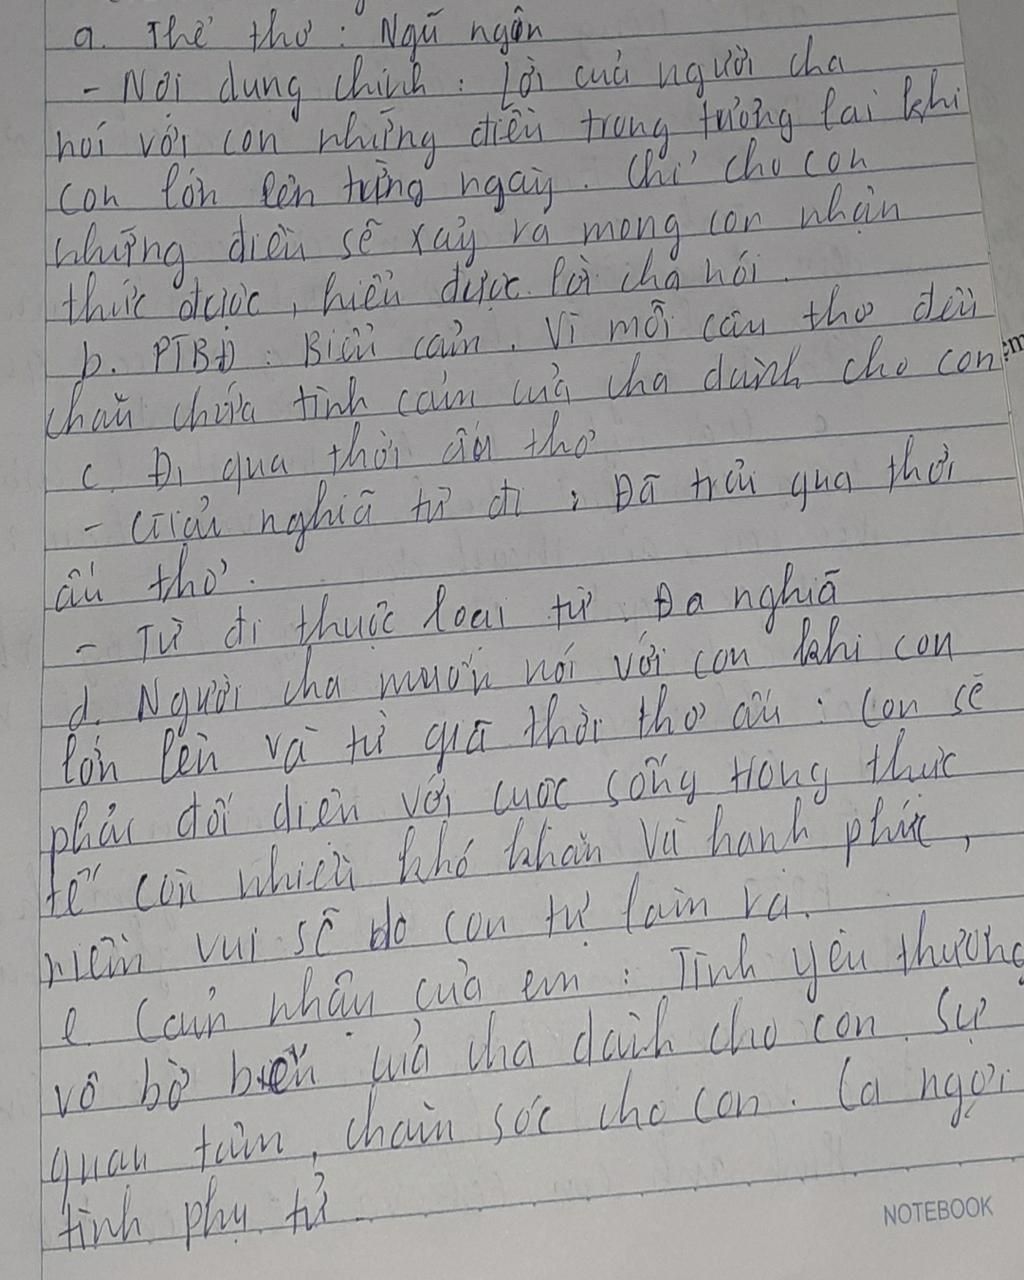 a. Thể thơ : Ngũ ngôn
- Nội dung chính : Lời của người cha
nói với con những điều trong tương lai khi
con lớn lên từng ngày. Chỉ cho con
những điều sẽ xảy ra mong con nhận
thức được, hiểu được lời cha nói.
b. PTBĐ : Biểu cảm. Vì mỗi câu thơ đều
chan chứa tình cảm của cha dành cho con
c. Đi qua thời ấu thơ
- Giải nghĩa từ đi : Đã trải qua thời
ấu thơ.
- Từ đi thuộc loại từ : Đa nghĩa
d. Người cha muốn nói với con khi con
lớn lên và từ giã thời thơ ấu : Con sẽ
phải đối diện với cuộc sống trong thực
tế còn nhiều khó khăn và hạnh phúc,
niềm vui sẽ do con tự làm ra.
e. Cảm nhận của em : Tình yêu thương
vô bờ bến của cha dành cho con. Sự
quan tâm, chăm sóc cho con. Ca ngợi
tình phụ tử
NOTEBOOK